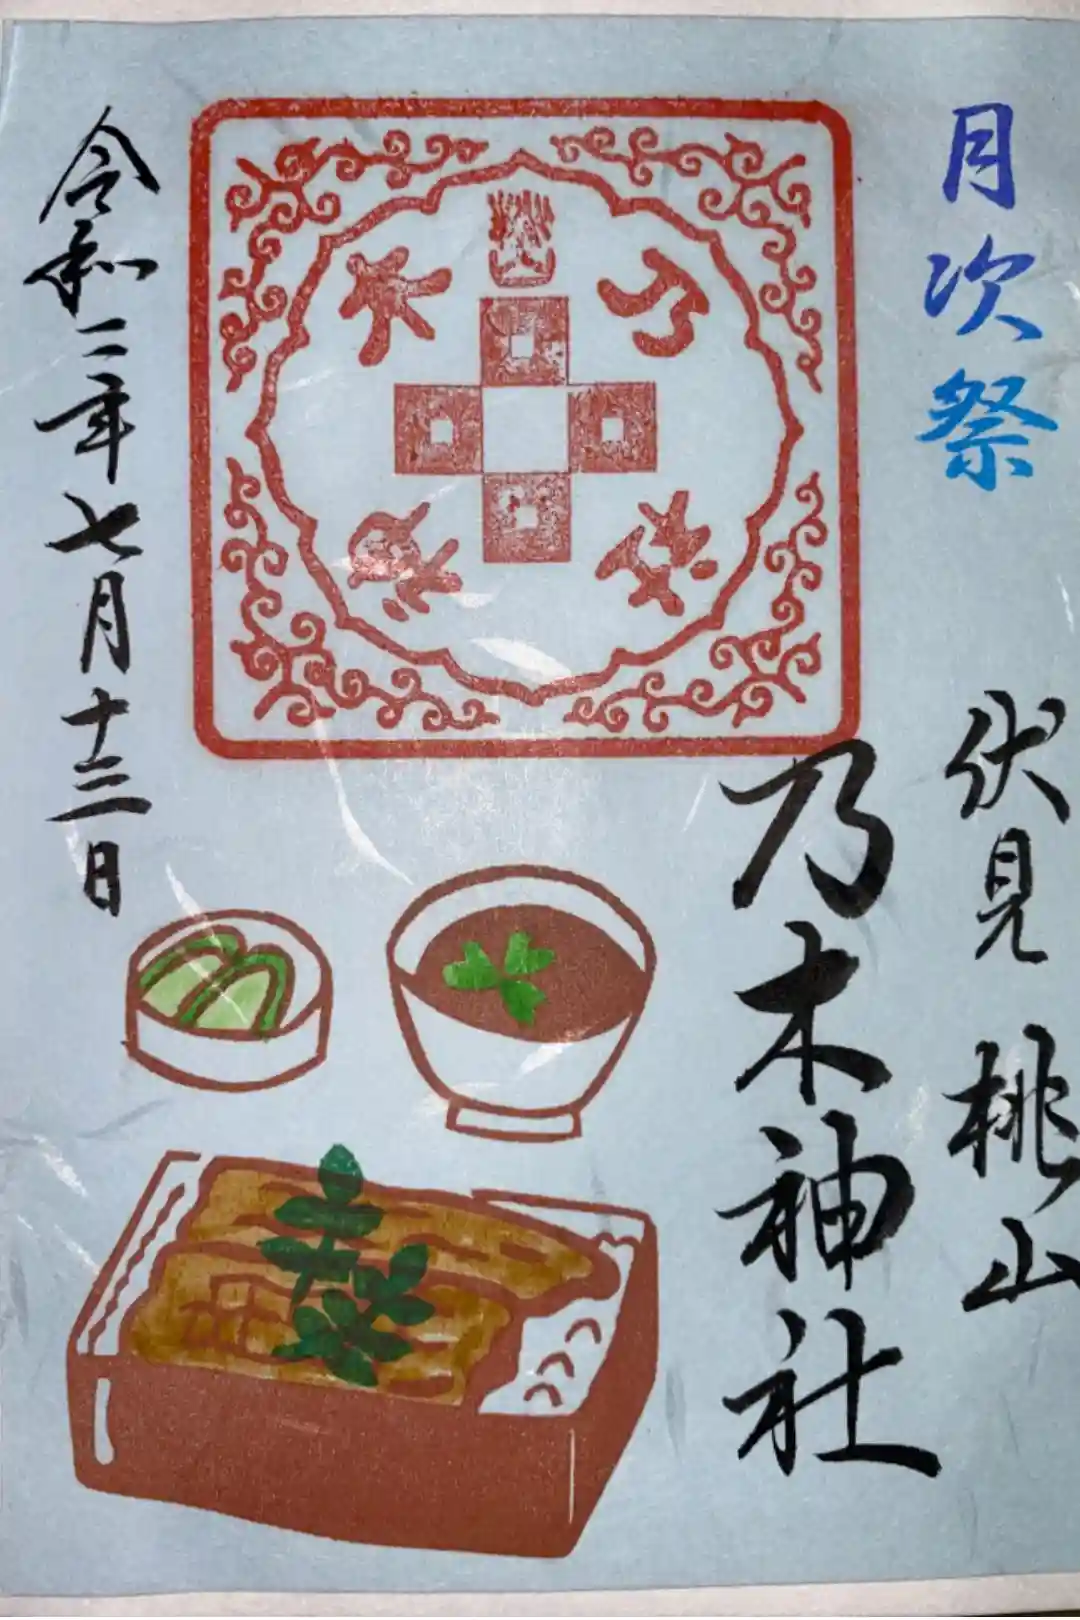 月次祭
伏見 桃山
乃木神社
令和二年七月十三日